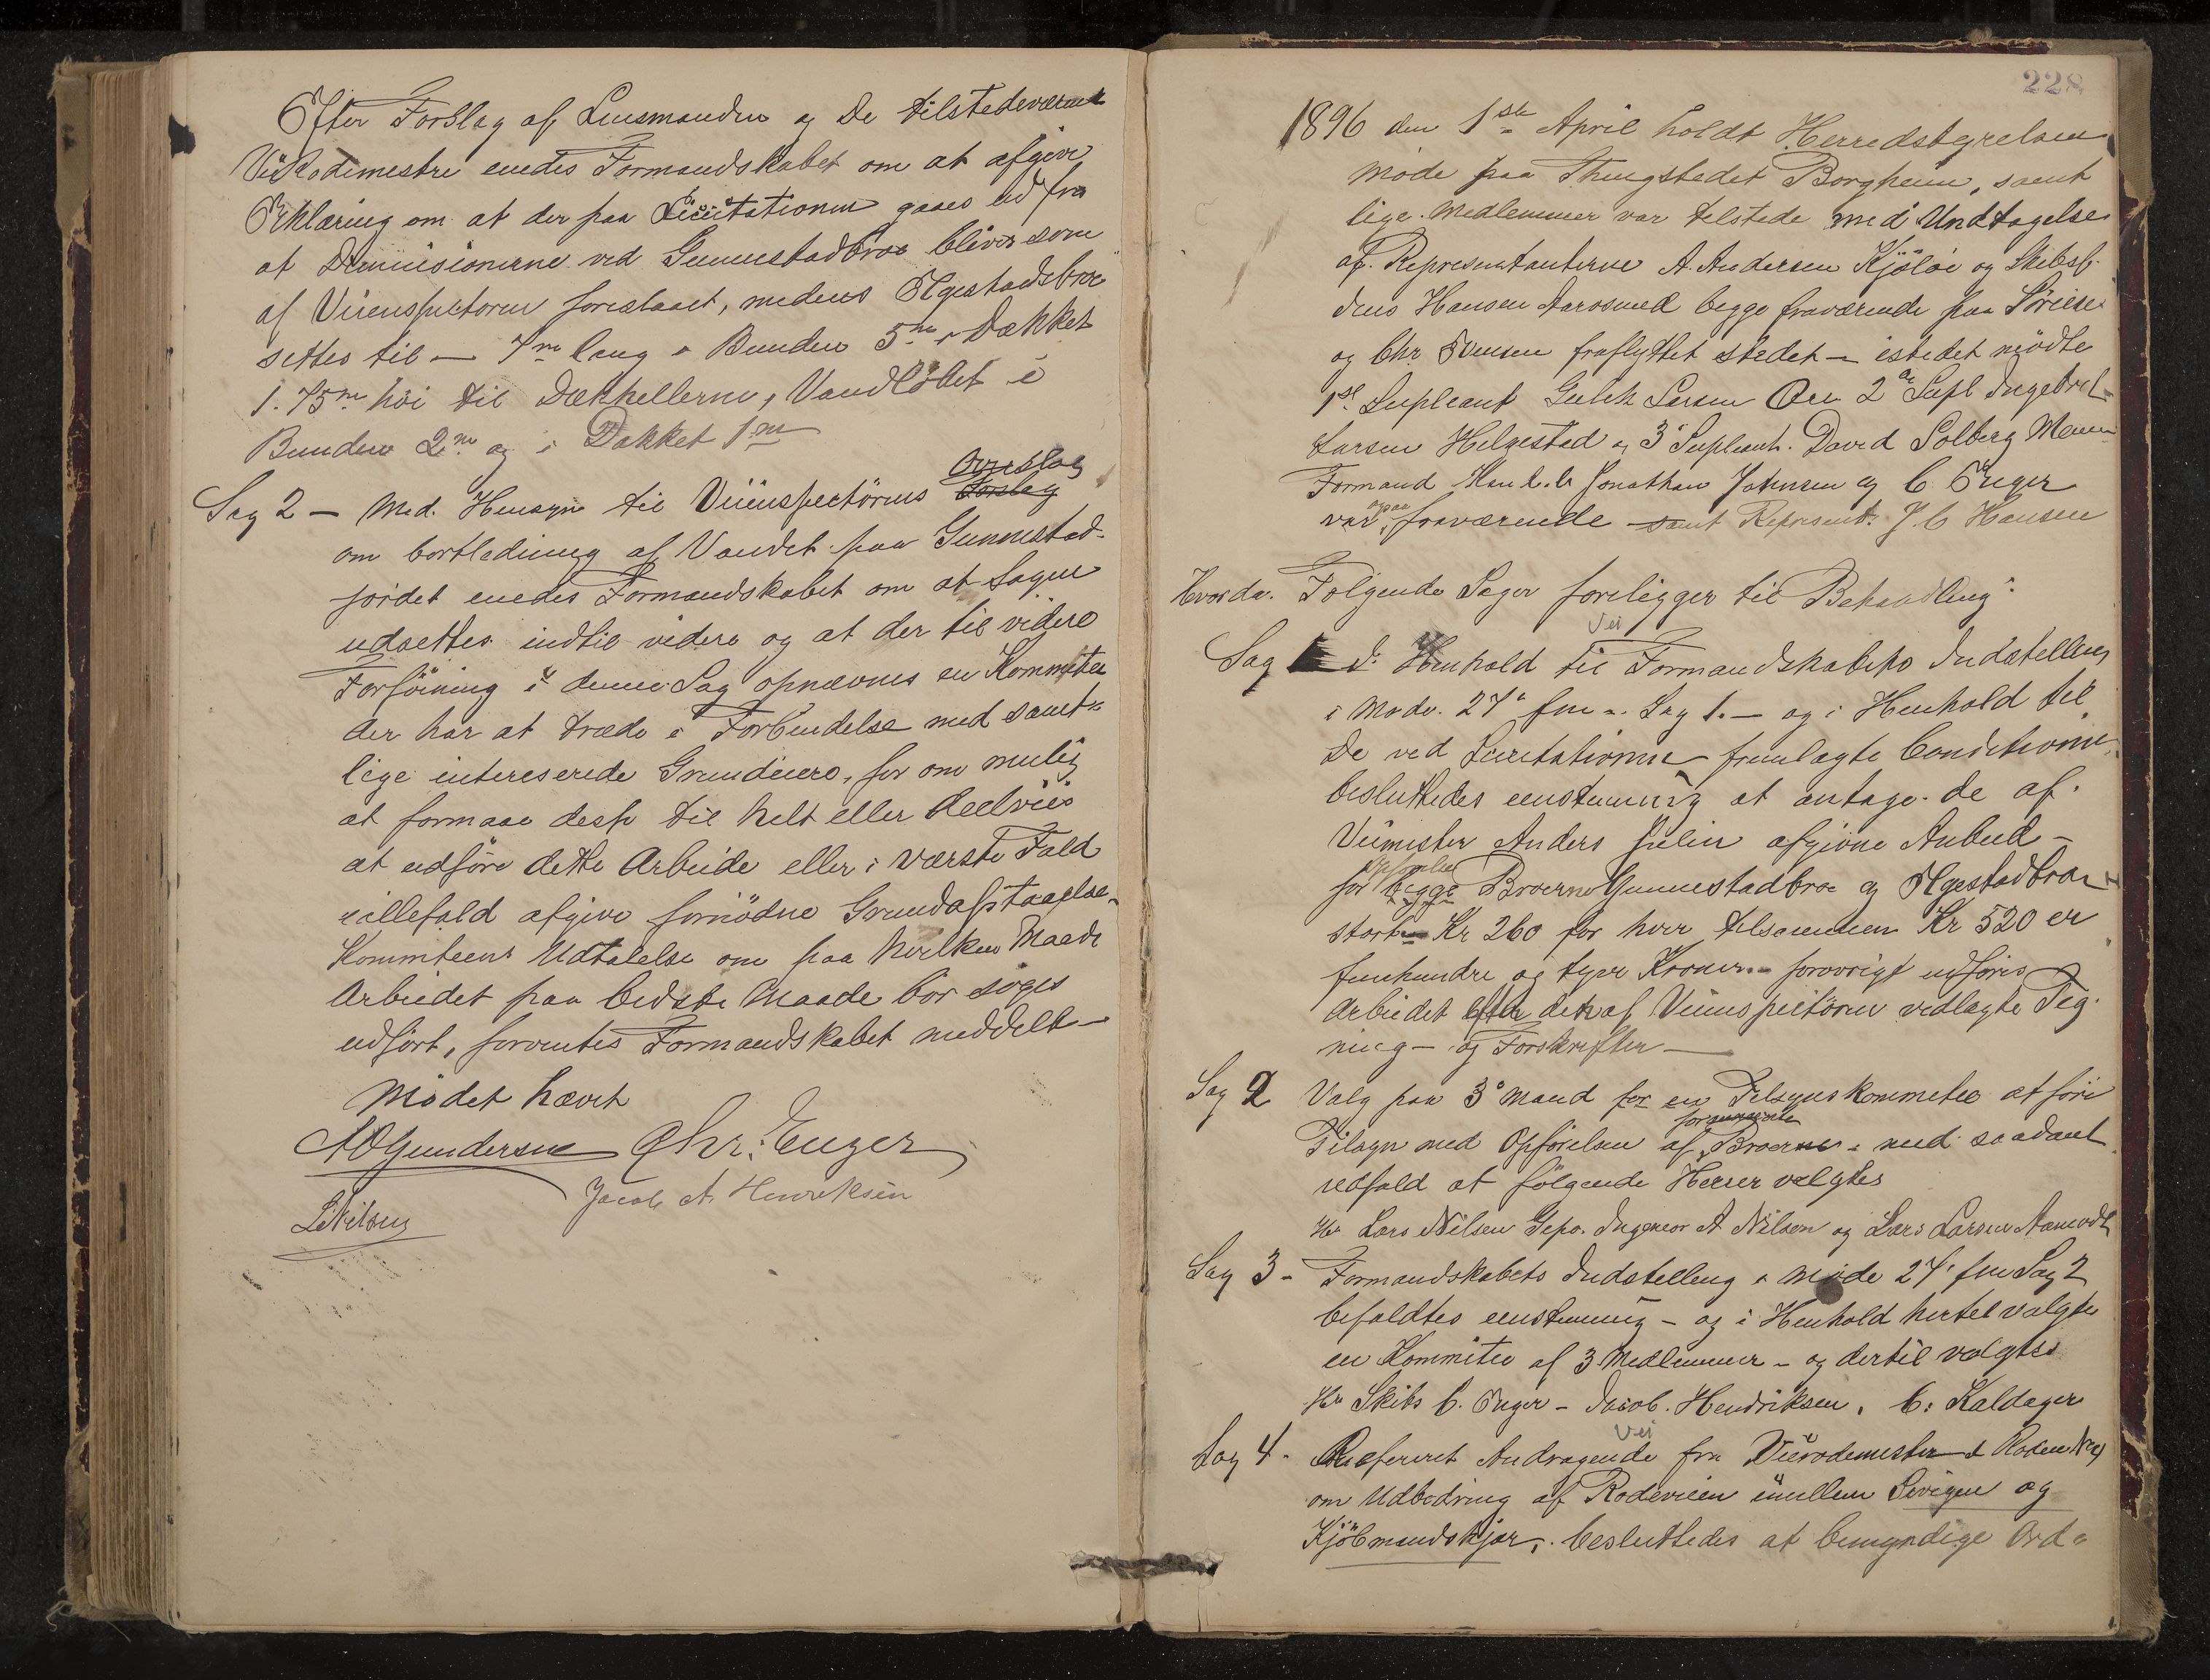 Efter Forslag af Lensmanden og De tilstedeværende
Veirodemestre enedes Formandskabet om at afgive
Erklæring om at der paa Licitationen gaaes ud fra
at Dimensionerne ved Gunnestadbroe bliver som
af Veiinspektoren foreslaaet, medens Elgestadsbroe
settes til — 7m lang i Bunden 5m i Dækket
1.75m høi til Dækhellerne, Vandløbet i
Bunden 2m og i Dækket 1m
Sag 2 — Med Hensyn til Veiinspectørens Forslag
om bortledning af Vandet paa Gunnestad-
jordet enedes Formandskabet om at Sagen
udsettes indtil videre og at der til videre
Forføining i denne Sag opnævnes en Kommitee
der har at træde i Forbindelse med samt-
lige intereserede Grundeiere, for om mulig
at formaae desse til helt eller deelviis
at udføre dette Arbeide eller i værste Fald
afgive fornødne Grundafstaaelse.
Kommiteens Udtalelse om paa hvilken Maade
Arbeidet paa bedste Maade bør søges
udført, forventes Formandskabet meddelt —
Mødet hævet
A O Gundersen Chr. Enger
Jacob A. Henriksen
L Nilsen
228
1896 den 1ste April holdt Herredstyrelsen
Møde paa Thingstedet Borgheim, samt
lige Medlemmer var tilstede med Undtagelse
af Represntanterne A. Andersen Kjøløe og Skibsf.
Jens Hansen Aarosund begge fraværende paa Søreise
og Chr. Svensen fraflyttet stedet — istedet mødte
1st Supleant Larsen 2de Supl Ingebret
Larsen Helgestad og 3die Supleant. David Solberg
Formand Jonathan Johnsen og C Enger
var ogsaa fraværende samt Represent. J. C Hansen
Hvorda. Følgende Sager foreligger til Behandling:
Vei
Sag 1 I Henhold til Formandskabets Indstelling
i Møde 27de fm. Sag 1. — og i Henhold til
De ved Licitationen fremlagte Conditioner
besluttedes eenstemmig at antage de af
Veimester Anders Julin afgivne Anbud —
Opførelse
for begge Broerne Gunnestadbroe og Elgestadbroe
stort Kr 260 for hver tilsammen Kr 520 er
femhundre og tyve Kroner — forøvrigt udføres
Arbeidet efter den af Veiinspectøren vedlagte Teg-
ning — og Forskrifter —
Sag 2 Valg paa 3 Mand for en Tilsynskommitee at føre
fornævnte
Tilsyn med Opførelsen af Broerne — med saadant
udfald at følgende Herrer valgtes
Hr Lars Nilsen Gipø. Ingeniør A Nilsen og Lars Larsen Aamodt
Sag 3 — Formandskabets Indstelling i Møde 27de fm Sag 2
bifaldtes eenstemmig — og i Henhold hertil valgtes
en Kommitee af 3 Medlemmer — og dertil valgtes
Hr Skibs C. Enger — Jacob Hendriksen, C: Kaldager
Vei
Sag 4 - Refereret Andragende fra Veirodemester i Roden No
om Udbedring af Rodeveien imellem Sevigen og
Kjøbmandskjær, besluttedes at bemyndige Ord-